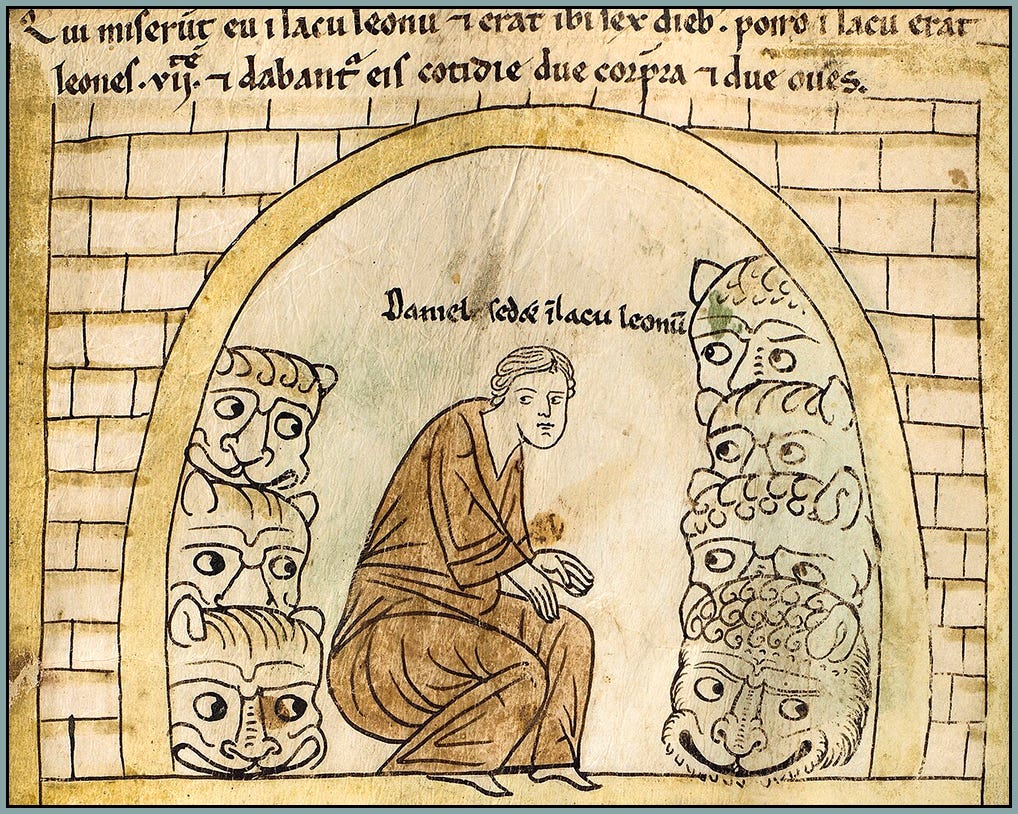 Qui miserūt eū i lacū leonū ⁊ erat ibi sex dieb. porro i lacu erāt
leones. vij.tē ⁊ dabant̾ eis cotidie due corp̄ra ⁊ due oues.
Daniel sedæ īlacu leonū